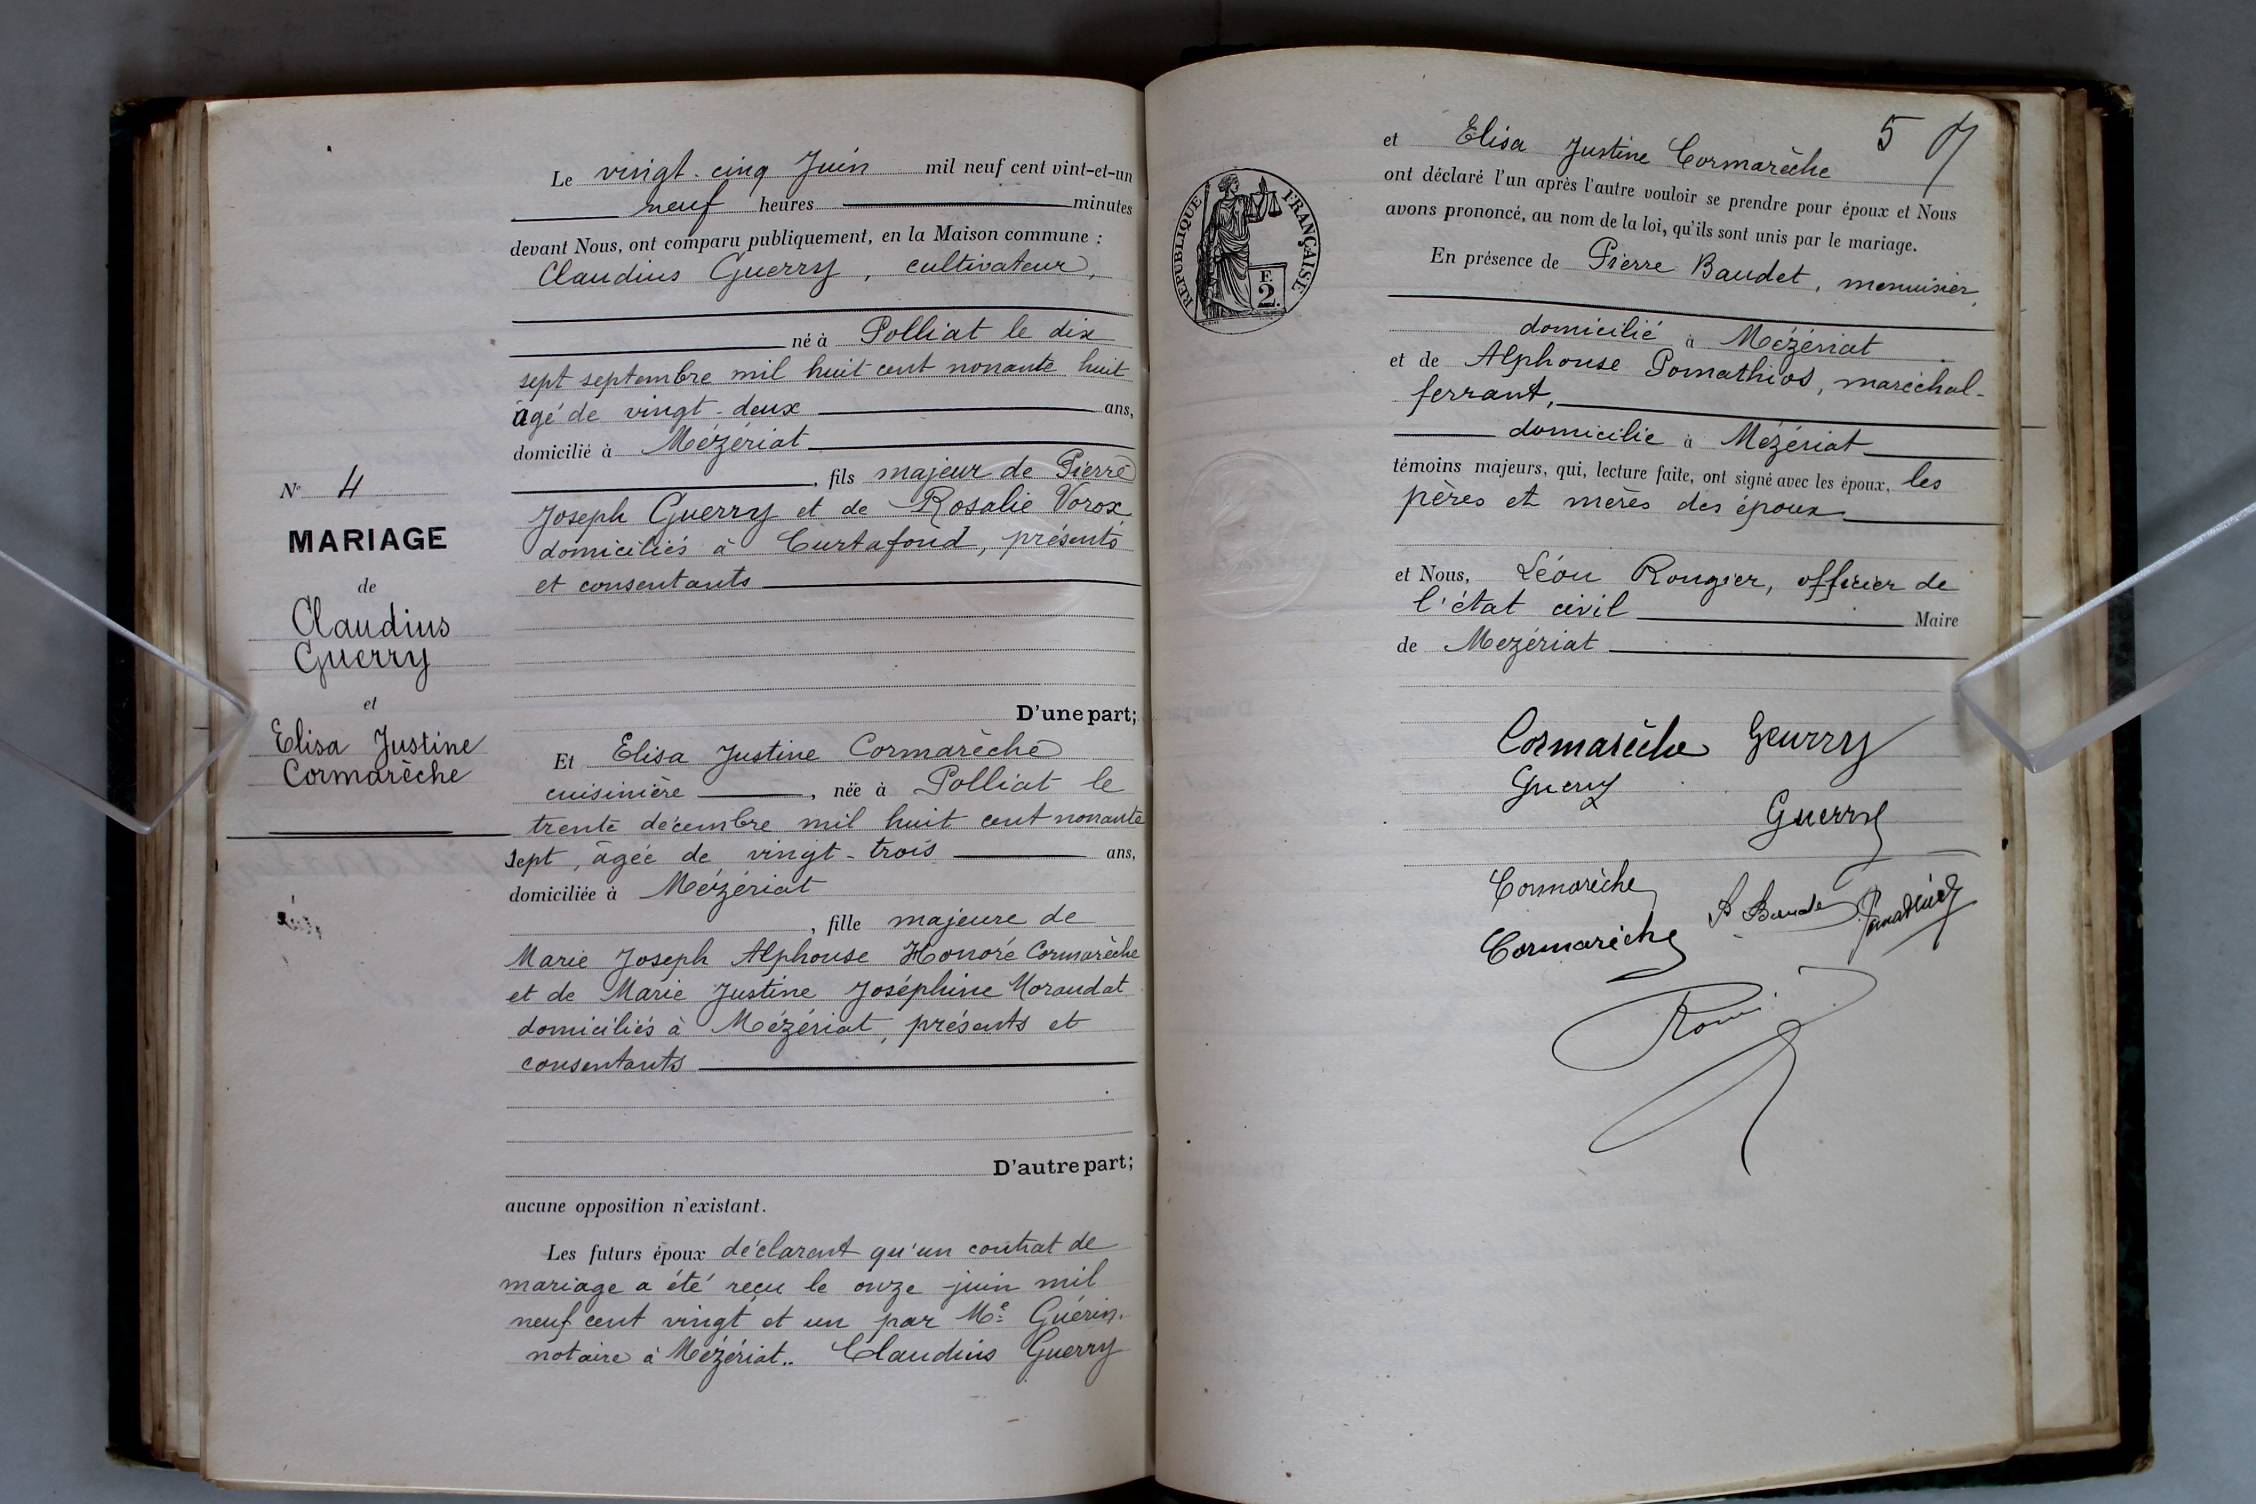 N° 4
MARIAGE
de
Claudius
Guerry
et
Elisa Justine
Cormarèche
Le vingt-cinq Juin mil neuf cent vint-et-un
neuf heures minutes
devant Nous, ont comparu publiquement, en la Maison commune :
Claudius Guerry, cultivateur,
né à Polliat le dix
sept septembre mil huit cent nonante huit
âgé de vingt-deux ans,
domicilié à Mézériat
, fils majeur de Pierre
Joseph Guerry et de Rosalie Vorox
domiciliés à Curtafond, présents
et consentants
D'une part;
Et Elisa Justine Cormarèche
cuisinière , née à Polliat le
trente décembre mil huit cent nonante
sept, âgée de vingt-trois ans,
domiciliée à Mézériat
, fille majeure de
Marie Joseph Alphonse Honoré Cormarèche
et de Marie Justine Joséphine Morandat
domiciliés à Mézériat, présents et
consentants
D'autre part;
aucune opposition n'existant.
Les futurs époux déclarent qu'un contrat de
mariage a été reçu le onze juin mil
neuf cent vingt et un par Me Guérin,
notaire à Mézériat.. Claudius Guerry
5
et Elisa Justine Cormarèche
ont déclaré l'un après l'autre vouloir se prendre pour époux et Nous
avons prononcé, au nom de la loi, qu'ils sont unis par le mariage.
RÉPUBLIQUE FRANÇAISE
F.
2.
En présence de Pierre Baudet, menuisier,
domicilié à Mézériat
et de Alphonse Pomathios, maréchal-
ferrant,
domicilié à Mézériat
témoins majeurs, qui, lecture faite, ont signé avec les époux, les
pères et mères des époux
et Nous, Léon Rougier, officier de
l'état civil Maire
de Mezériat
Cormarèche Geurry
Guerry
Guerry
Cormarèche
Cormarèche